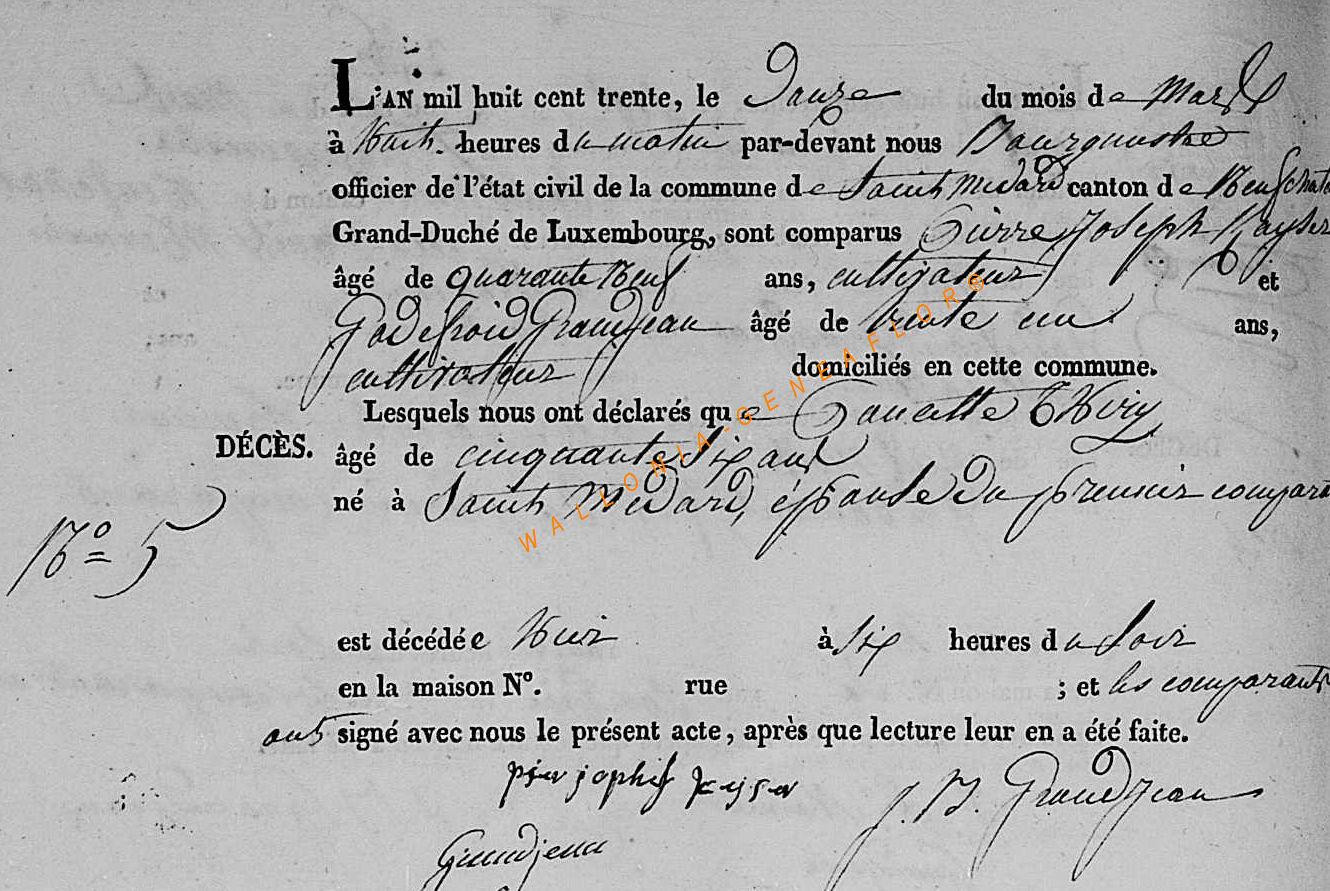 L'AN mil huit cent trente, le Douze du mois de Mars
à Huit heures du matin par-devant nous Bourgmestre
officier de l'état civil de la commune de Saint Médard canton de Neufchate
Grand-Duché de Luxembourg, sont comparus Pierre Joseph Kayser
âgé de quarante Neuf ans, cultivateur et
Godefroid Grandjean âgé de trente un ans,
cultivateur domiciliés en cette commune.
Lesquels nous ont déclarés que Poncette Thiry
DÉCÈS. âgé de cinquante Six ans
né à Saint Médard, épouse du premier compara
No 5
est décédée Hier à Six heures du Soir
en la maison No. rue ; et les comparants
ont signé avec nous le présent acte, après que lecture leur en a été faite.
J. B. Grandjean
Grandjean
WALLONIA-GENEAFLOR®